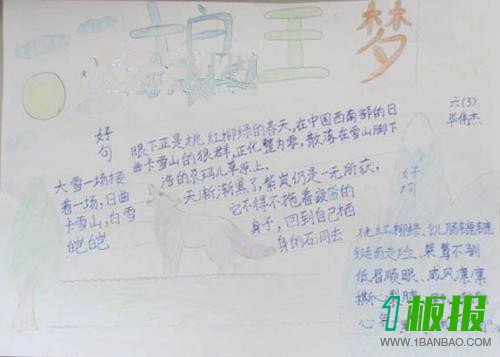 狼王梦
六(3)
毕伟杰
好句
眼下正是桃红柳绿的春天,在中国西南部的日
曲卡雪山的狼群,正化整为零,散落在雪山脚下
浩的尕玛儿草原上。
大雪一场接
着一场,日曲
卡雪山,白雪
皑皑
天渐渐黑了,紫岚仍是一无所获,
它不得不拖着疲惫的
身子,回到自己栖
身的石洞去
好词
桃红柳绿、饥肠辘辘
铤而走险、桀骜不驯
低眉顺眼、威风凛凛
撕心裂肺
心
1板报
WWW.1BANBAO.COM